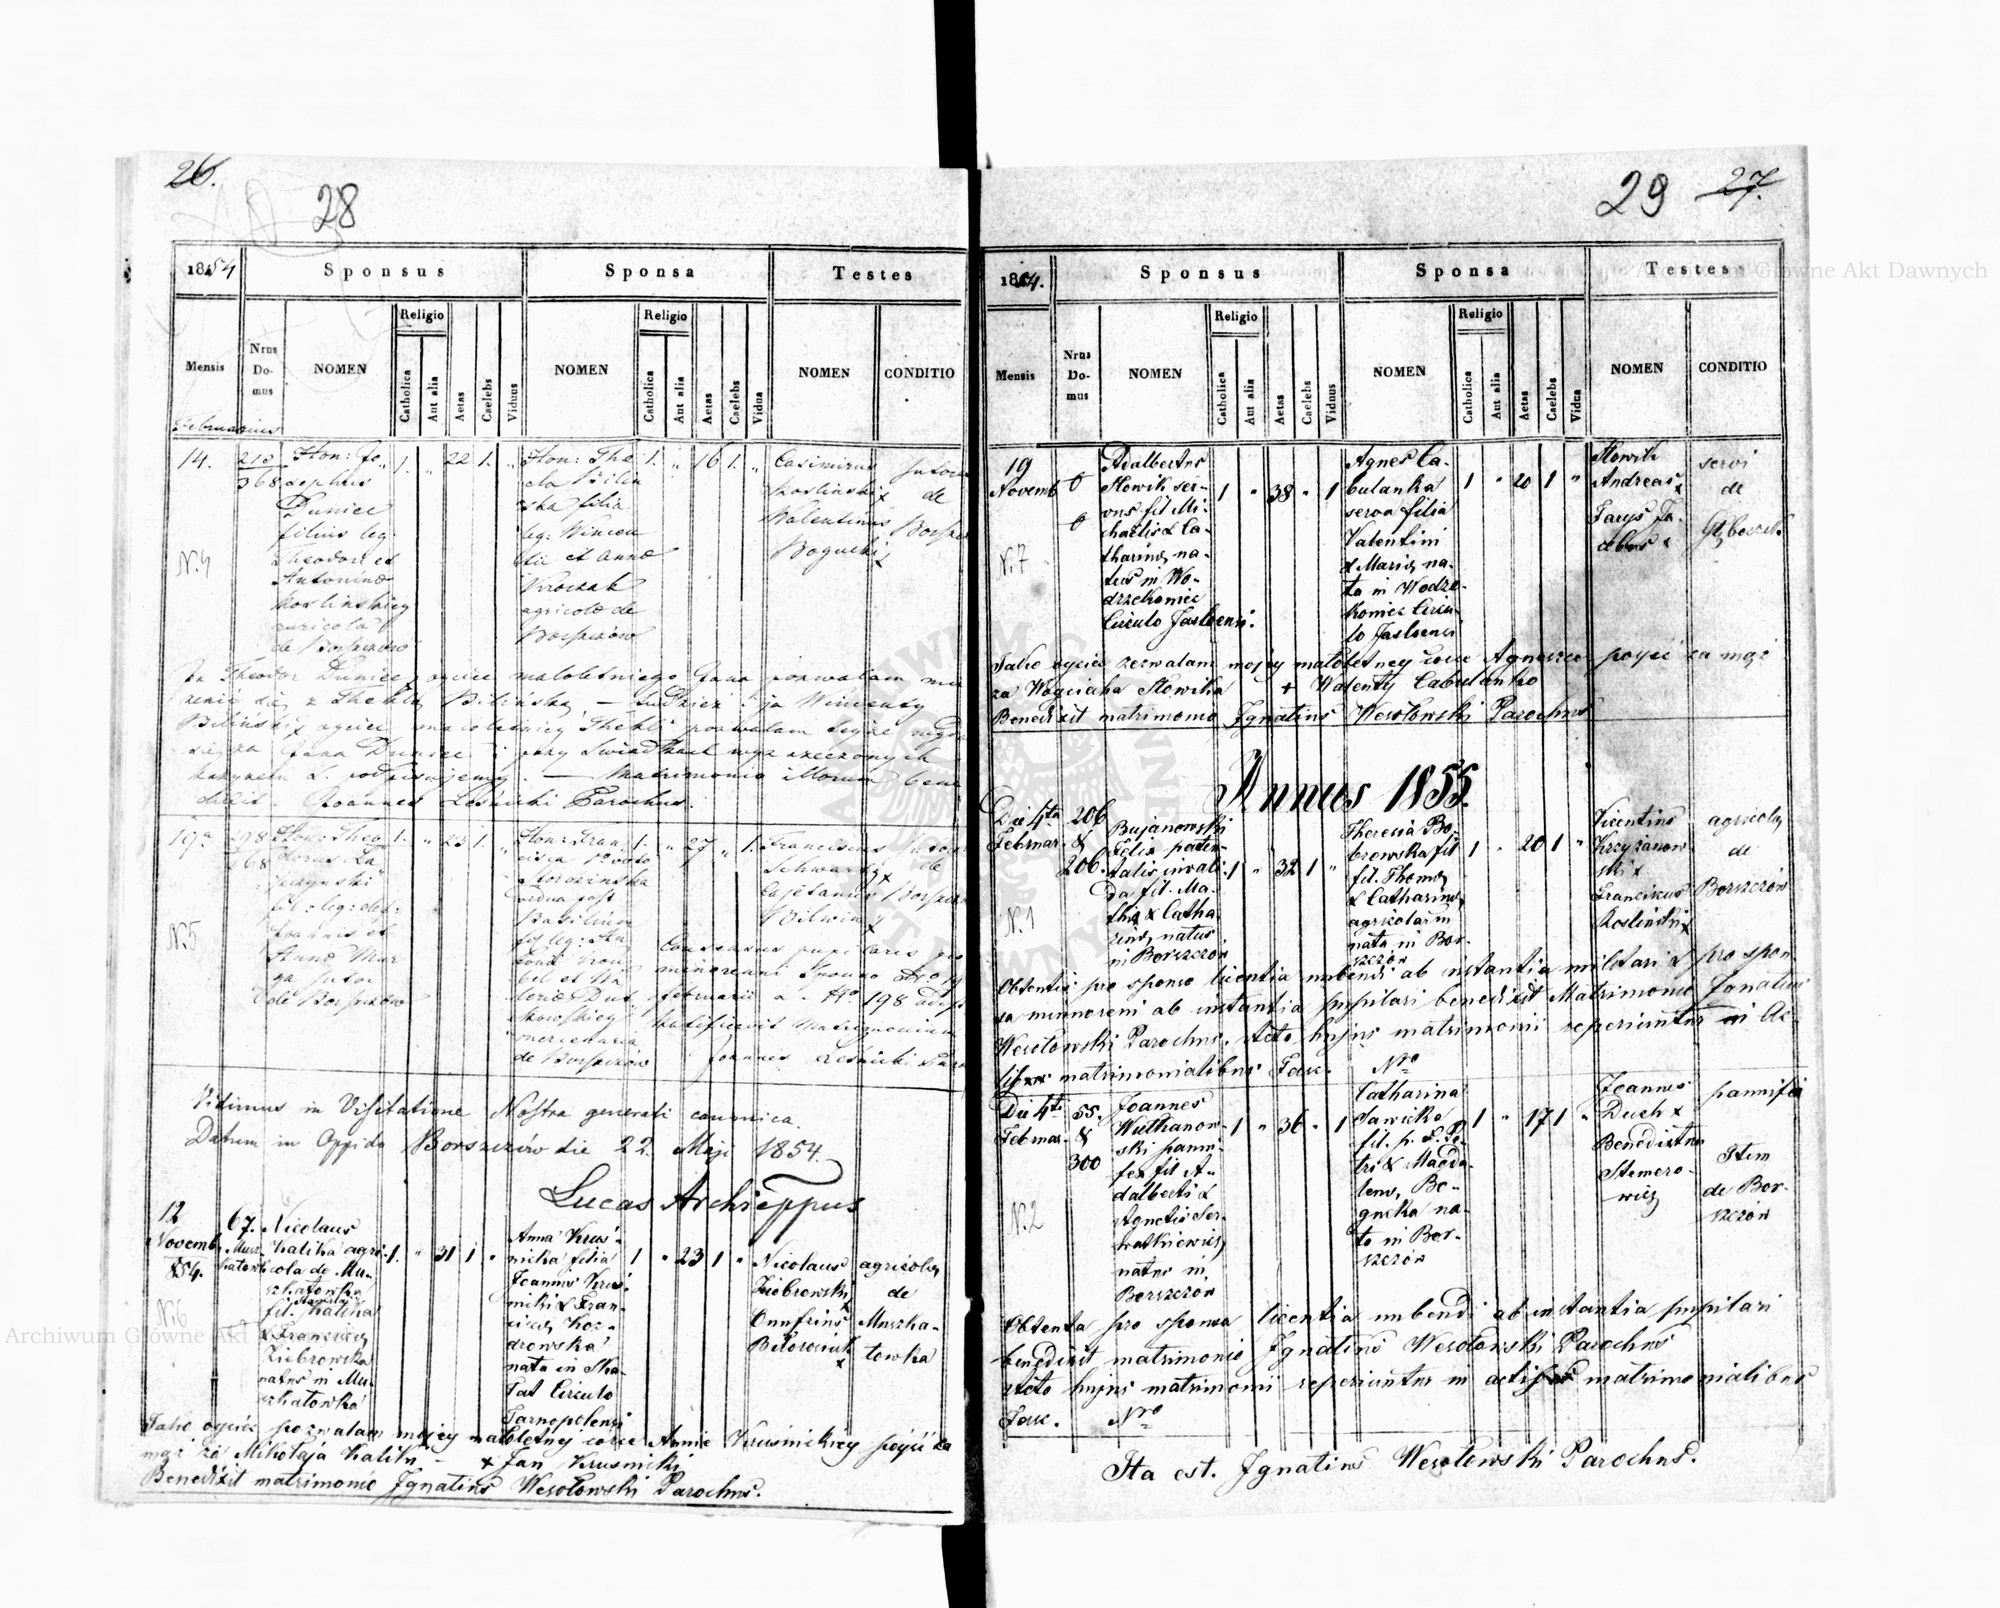 26.
28
1854
Sponsus
Sponsa
Testes
Mensis
Nrus Do- mus
NOMEN
Religio
Catholica
Aut alia
Aetas
Caelebs
Viduus
NOMEN
Religio
Catholica
Aut alia
Aetas
Caelebs
Vidua
NOMEN
CONDITIO
Februarius
14.
N.4
368
Hon: Jo-
sephus
Duniec
filius leg:
Theodori et
Antoninae
Koslinskiej
agricola
de Borszczów
1.
"
22
1.
"
Hon: The
cla Bilin
ska filia
leg: Wincen
tii et Annae
agricolae de
Borszczów
1.
"
16
1.
"
Casimirus
Koslinski x
Valentinus
Bogucki x
de
Ja Theodor Duniec x ojciec małoletniego Jana pozwalam mu
żenić się z Theklą Bilińską — tudzież i ja Wincenty
Biliński x ojciec małoletniej Thekli pozwalam tejże
się za Jana Duniec i przy świadkach wyż rzeczonych
podpisujemy. — Matrimonio illorum bene
dixit Joannes Leśnicki Parochus.
19a
N.5
298
168
Hon: Theo
dorus
Joannis et
Annae
de Borszczów
1.
"
23
1.
"
Hon: Fran
cisca 1o voto
vidua post
Basilium
fil leg: An
mercenaria
de Borszczów
1.
"
27
"
1.
Franciscus
Schwartz x
Cajetanus
Wilwin x
de
Consensus pupilaris pro
februarii a.
198
Matrimonium
Joannes Leśnicki
Vidimus in Visitatione Nostra generali canonica.
Datum in Oppido Borszczów die 22. Maji 1854.
Lucas Archieppus
12
Novemb
854.
N.6
67.
Nicolaus
Kalika agri-
cola de Mu-
szkatowka
fil. Stanislai Kalika
& Franciscae
Ziebrowska
natus in Mu-
szkatowka
1.
"
31
1
"
Anna Krus-
nicka filia
Joannis Krus-
nicki & Fran-
ciscae Koz-
drowska
nata in Ska-
łat Circulo
Tarnopolensi
1
"
23
1
"
Nicolaus
Ziebrowski x
Onufrius
x
agricolae
de
Muszka-
towka
Jako ojciec pozwalam mojej małoletnej córce Annie Krusnickiej pójść za
mąż za Mikołaja Kalikę — + Jan Krusnicki
Benedixit matrimonio Ignatius Wesołowski Parochus.
29
27.
1854.
Sponsus
Sponsa
Testes
Mensis
Nrus Do- mus
NOMEN
Religio
Catholica
Aut alia
Aetas
Caelebs
Viduus
NOMEN
Religio
Catholica
Aut alia
Aetas
Caelebs
Vidua
NOMEN
CONDITIO
19
Novemb
N.7
Adalbertus
Słowik ser-
vus fil Mi-
chaelis & Ca-
tharinae na-
tus in Wo-
dzrekowiec
Circulo Jasloensi.
1
"
38
"
1
Agnes Ca-
bulanka
serva filia
Valentini
& Mariae na-
ta in Wodze-
kowiec Circu-
lo Jasloensi
1
"
20
1
"
Słowik
Andreas x
Jarys Ja-
cobus x
servi
de
Jako ojciec zezwalam mojej małoletney córce Agnieszce pójść za mąż
za Wojciecha Słowika + Walenty Cabulanka
Benedixit matrimonio Ignatius Wesołowski Parochus
Annus 1855.
Die 4ta
Februar.
N.1
206
&
206.
Bujanowski
Felix paten-
talis invali-
da fil. Ma-
thiae & Catha-
rinae natus
in Borszczów
1
"
32
1
"
Theresia Bo-
browska fil
fil. Thomae
& Catharinae
agricolarum
nata in Bor-
szczów
1
"
20
1
"
Vicentius
Krzyżanow-
ski x
Franciscus
Kosliński x
agricolae
de
Borszczów
Obtenta pro sponso licentia nubendi ab instantia militari & pro spon-
sa minoreni ab instantia pupilari benedixit Matrimonio Ignatius
Wesołowski Parochus. Acta hujus matrimonii reperiuntur in Ac-
tis matrimonialibus Fasc. Nro
Die 4ta
Februar.
N.2
55.
&
300
Joannes
Wilhanow-
ski panni-
fex fil A-
dalberti &
Agnetis Ser-
watkiewicz
natus in
Borszczów
1
"
36
"
1
Catharina
Sawicka
fil. p. d. Pe-
tri & Magda-
lenae Bo-
gucka na-
ta in Bor-
szczów
1
"
17
1
"
Joannes
Duch x
Benedictus
Stemero-
wicz
pannifex
Item
de Bor-
szczów
Obtenta pro sponsa licentia nubendi ab instantia pupilari
benedixit matrimonio Ignatius Wesołowski Parochus
Acta hujus matrimonii reperiuntur in actis matrimonialibus
Fasc. Nro
Ita est. Ignatius Wesołowski Parochus.
Archiwum Główne Akt Dawnych
Archiwum Główne Akt